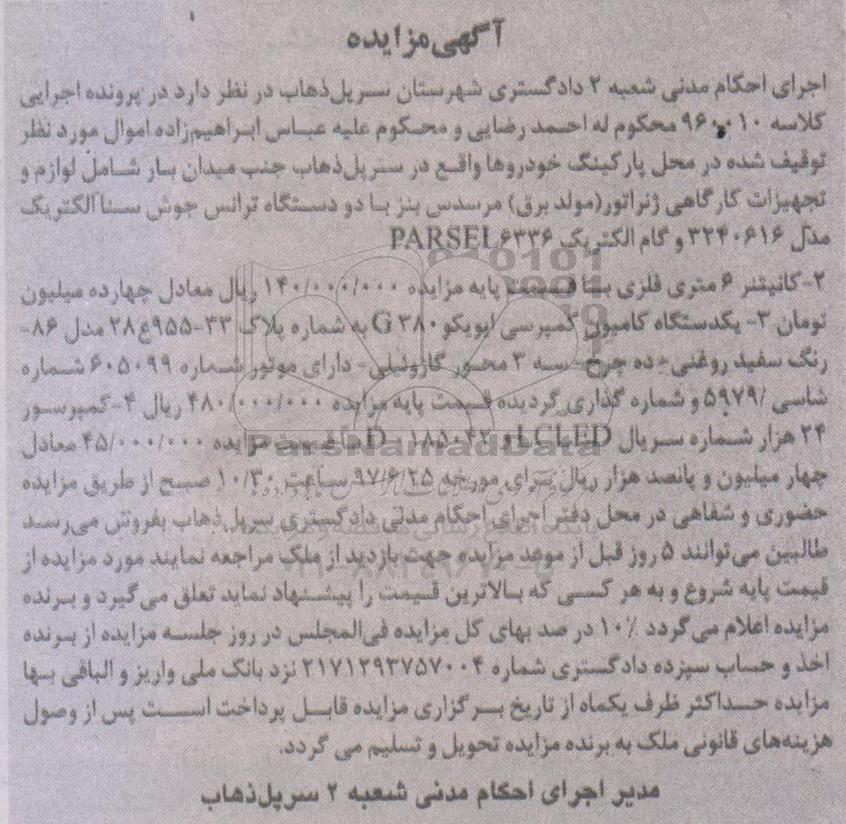 آگهی مزایده
اجرای احکام مدنی شعبه ۲ دادگستری شهرستان سرپل‌ذهاب در نظر دارد در پرونده اجرایی
کلاسه ۹۶۰۰۱۰ محکوم له احمد رضایی و محکوم علیه عباس ابراهیم‌زاده اموال مورد نظر
توقیف شده در محل پارکینگ خودروها واقع در سرپل‌ذهاب جنب میدان بار شامل لوازم و
تجهیزات کارگاهی ژنراتور(مولد برق) مرسدس بنز با دو دستگاه ترانس جوش سناالکتریک
مدل ۳۲۴۰۶۱۶ و گام الکتریک PARSEL۶۳۳۶
۲-کانیتنر ۶ متری فلزی با قیمت پایه مزایده ۱۴۰/۰۰۰/۰۰۰ ریال معادل چهارده میلیون
تومان ۳- یکدستگاه کامیون کمپرسی ایویکو G۳۸۰ به شماره پلاک ۳۳-۹۵۵ع۲۸ مدل ۸۶-
رنگ سفید روغنی- ده چرخ- سه محور گازوئیلی- دارای موتور شماره ۶۰۵۰۹۹ شماره
شاسی /۵۹۷۹ و شماره گذاری گردیده قیمت پایه مزایده ۴۸۰/۰۰۰/۰۰۰ ریال ۴-کمپرسور
۲۴ هزار شماره سریال LCLED او ۱۸۵۰۴۲ D مزایده ۴۵/۰۰۰/۰۰۰ معادل
چهار میلیون و پانصد هزار ریال برای مورخه ۹۷/۶/۲۵ ساعت ۱۰/۳۰ صبح از طریق مزایده
حضوری و شفاهی در محل دفتر اجرای احکام مدنی دادگستری سرپل‌ذهاب بفروش می‌رسد
طالبین می‌توانند ۵ روز قبل از موعد مزایده جهت بازدید از ملک مراجعه نمایند مورد مزایده از
قیمت پایه شروع و به هر کسی که بالاترین قیمت را پیشنهاد نماید تعلق می‌گیرد و برنده
مزایده اعلام می‌گردد ۱۰٪ در صد بهای کل مزایده فی‌المجلس در روز جلسه مزایده از برنده
اخذ و حساب سپزده دادگستری شماره ۲۱۷۱۲۹۳۷۵۷۰۰۴ نزد بانک ملی واریز و الباقی بها
مزایده حداکثر ظرف یکماه از تاریخ برگزاری مزایده قابل پرداخت است پس از وصول
هزینه‌های قانونی ملک به برنده مزایده تحویل و تسلیم می گردد.
مدیر اجرای احکام مدنی شعبه ۲ سرپل‌ذهاب
ParsNamadData